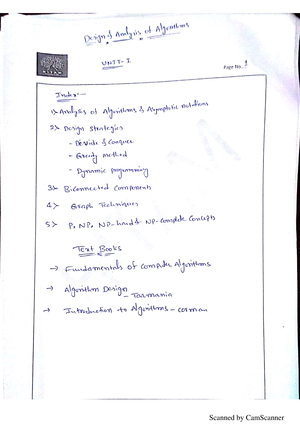 Design & Analysis of Algorithms
UNIT-I
Page No. 1
Index:-
1> Analysis of Algorithms & Asymptotic Notations
2> Design Strategies
- Divide & Conquer
- Greedy Method
- Dynamic programming
3> Biconnected Components
4> Graph Techniques
5> P, NP, NP-hard & NP-complete Concepts
Text Books
→ Fundamentals of Computer Algorithms
→ Algorithm Design
- Tasmania
→ Introduction to Algorithms - corman
Scanned by CamScanner